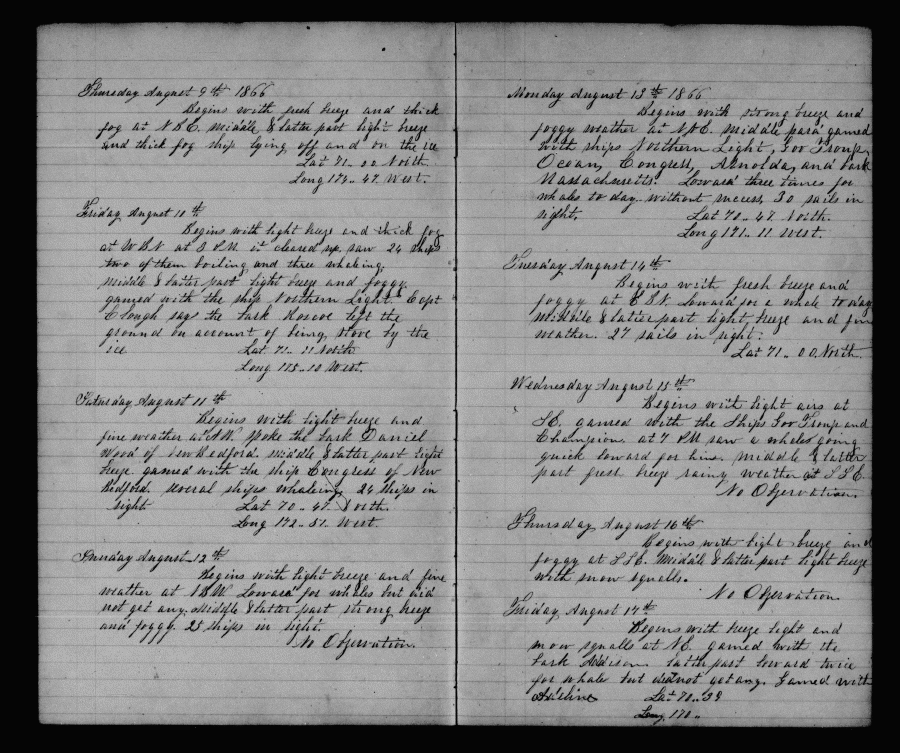 Thursday August 9th 1866
Begins with fresh breze and thick
fog at N.B.E. middle & latter part light breze
and thick fog ship lying off and on the ice
Lat 71.. 00 North
Long 174.. 47 West.
Friday August 10th
Begins with light breze and thick fog
at W.B.N at 8 PM it cleared up, saw 24 ships
two of them boiling and three whaling
middle & latter part light breze and foggy
gamed with the ship Northern Light Capt
Clough says the bark Roscoe left the
ground on account of being stove by the
ice Lat 71.. 11 North
Long 175.. 10 West.
Saturday August 11th
Begins with light breze and
fine weather at N.W. spoke the bark Daniel
Wood of New Bedford. middle & latter part light
breze gamed with the ship Congress of New
Bedford. several ships whaleing 24 ships in
sight Lat 70.. 47 North.
Long 172.. 51 West
Sunday August 12th
Begins with light breze and fine
weather at S.B.W. Lowerd for whales but did
not get any. Middle & latter part strong breze
and foggy. 25 ships in sight.
No Observation.
Monday August 13th 1866
Begins with strong breze and
foggy weather at N.N.E. Middle part gamed
with ships Northern Light, Gov Troup,
Ocean, Congress, Arnolda, and bark
Massachusetts. Lowerd three times for
whales to day without success, 30 sails in
sight, Lat 70.. 47. North.
Long 171.. 11 West.
Tuesday August 14th
Begins with fresh breze and
foggy at E.S.N. Lowerd for a whale to day
Middle & latter part light breze and fine
weather. 27 sails in sight.
Lat 71.. 00. North.
Wednesday August 15th
Begins with light airs at
S.E. gamed with the Ships Gov Troup and
Champion. at 7 PM saw a whale going
quick lowerd for him. Middle & latter
part fresh breze rainy weather at S.S.E.
No Observation.
Thursday August 16th
Begins with light breeze and
foggy at S.S.E. Middle & latter part light breeze
with snow squalls.
No Observation
Friday August 17th
Begins with breze light and
snow squalls at N.E. gamed with the
bark Addison latter part lowerd twice
for whales but did not get any. Gamed with
Adeline Lat 70.. 39
Long 170..